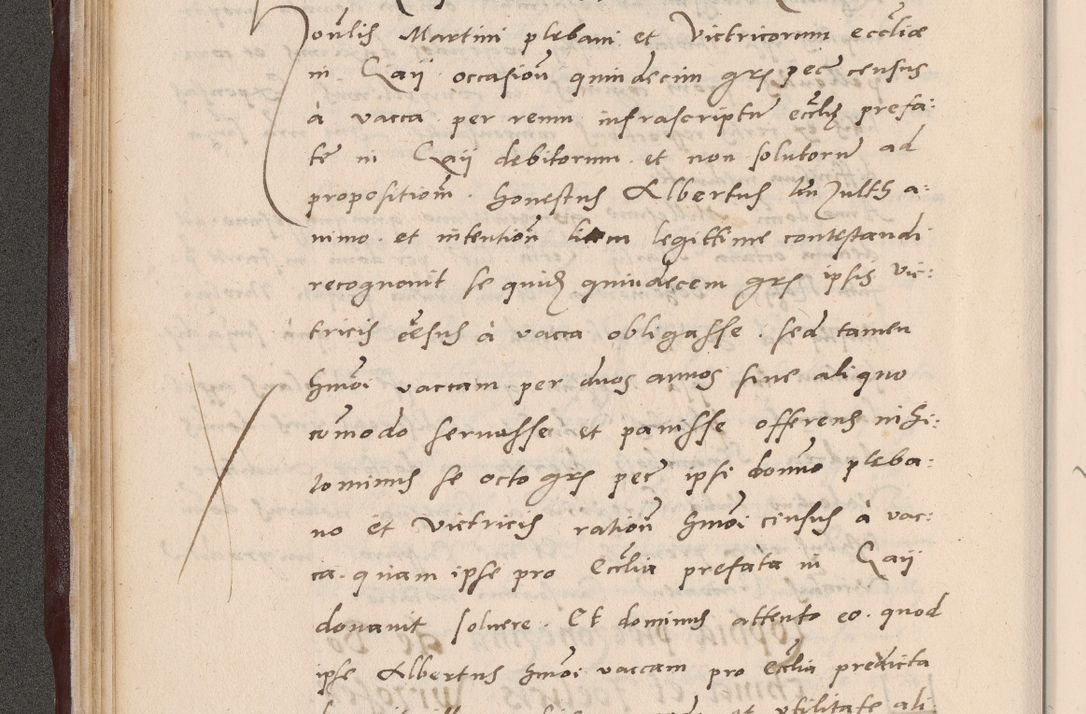 Martini plebani et Victricorum eccliæ
in Gaÿ occasioñ quindecim grs pec̃ census
à vacca per reum infrascriptũ ecclīę prefa:
te in Gaÿ debitorum et non solutorũ ad
propositioñ. Honestus Albertus a:
nimo et intentioñ litem legittime contestandi
recognovit se quindecem grs ipsis vic:
tricis à vacca obligasse. sed tamen
hmõi vaccam per duos annos sine aliquo
com̃odo servasse et pavisse offerens nihi:
lominus se octo grs pec̃ ipsi domno pleba:
no et Victricis ratioñ hmõi census à vac:
ca. quam ipse pro Eccľia prefata in Gaÿ
donavit solvere. Et dominus attento eo. quod
ipse Albertus hmõi vaccam pro Eccľia predicta
et utilitate ali